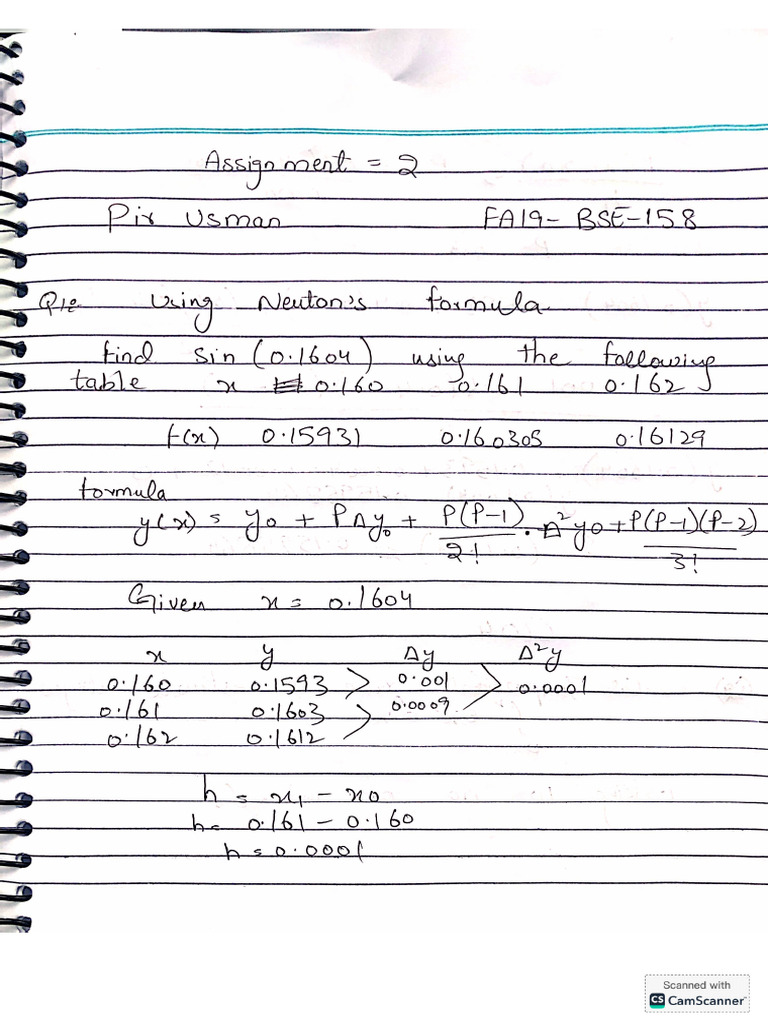 Assignment = 2
Pir Usman FA19-BSE-158
Q1: Using Newton's formula
find sin (0.1604) using the following
table x 0.160 0.161 0.162
f(x) 0.15931 0.160305 0.16129
formula
y(x) = y0 + P∆y0 + P(P-1)/2! · ∆²y0 + P(P-1)(P-2)/3!
Given x = 0.1604
x y ∆y ∆²y
0.160 0.1593 0.001 0.0001
0.161 0.1603 0.0009
0.162 0.1612
h = x1 - x0
h = 0.161 - 0.160
h = 0.0001
Scanned with
CS CamScanner